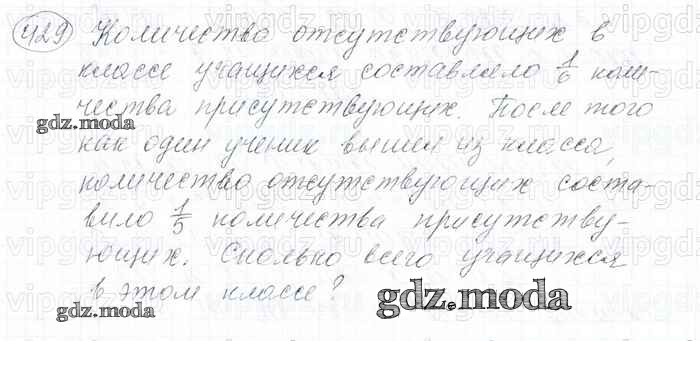 429 Количество отсутствующих в
классе учащихся составляло 1/6 коли-
чества присутствующих. После того
gdz.moda
как один ученик вышел из класса,
количество отсутствующих соста-
вило 1/5 количества присутству-
ющих. Сколько всего учащихся
в этом классе?
gdz.moda
gdz.moda